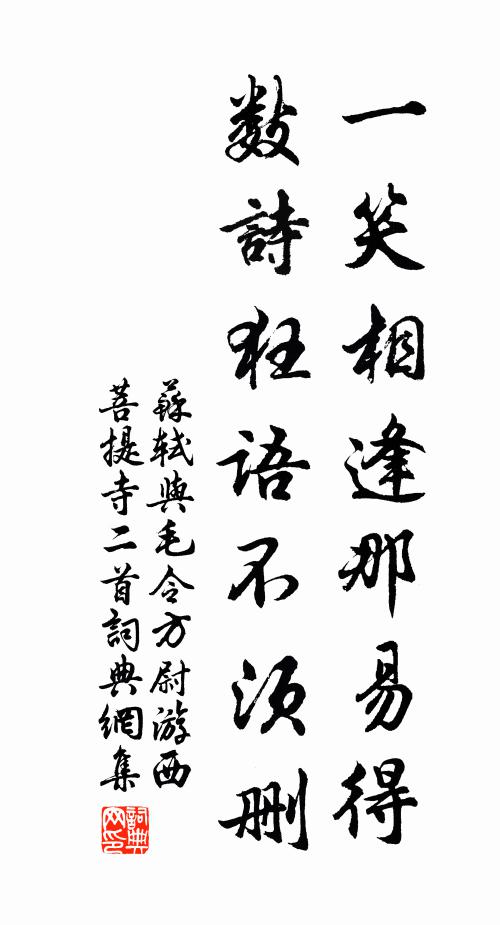 一笑相逢那易得
数詩狂語不須删
蘇軾與毛令方尉游西
菩提寺二首詞典網集
詞典
网印